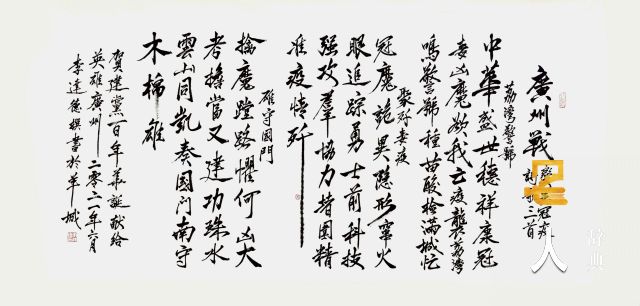 廣州戰
冠疫
詩三首
荔灣警號
中華盛世穗祥康冠
毒凶魔欲我亡疫襲荔灣
鳴警號種苗酸檢滿城忙
聚歼毒疫
冠魔詭異隐形窜火
眼追踪勇士前科技
强攻羣協力堵圍精
准疫情歼
雄守國門
擒魔蹬路懼何凶大
者擔當又建功珠水
雲山同凱奏國门南守
木棉雄
賀建黨一百年華誕献给
英雄廣州 二零二一年六月
李達德撰書於羊城
辞典
人